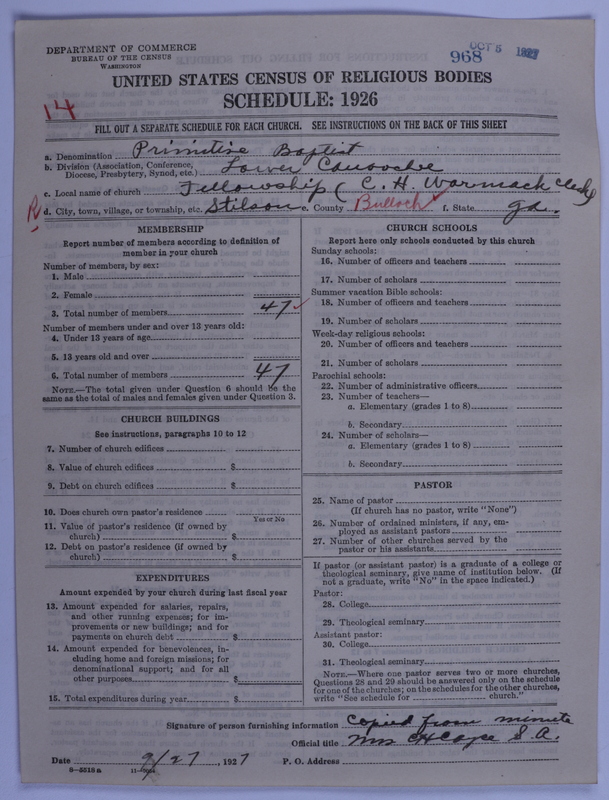 DEPARTMENT OF COMMERCE
BUREAU OF THE CENSUS
WASHINGTON
968 OCT 5 1927
UNITED STATES CENSUS OF RELIGIOUS BODIES
SCHEDULE: 1926
14
FILL OUT A SEPARATE SCHEDULE FOR EACH CHURCH. SEE INSTRUCTIONS ON THE BACK OF THIS SHEET
a. Denomination Primitive Baptist
b. Division (Association, Conference, Diocese, Presbytery, Synod, etc.) Lower Canoochee
c. Local name of church Fellowship (C. H. Warmack Clerk)
R d. City, town, village, or township, etc. Stilson e. County Bulloch f. State Ga.
MEMBERSHIP
Report number of members according to definition of
member in your church
Number of members, by sex:
1. Male
2. Female
3. Total number of members 47
Number of members under and over 13 years old:
4. Under 13 years of age
5. 13 years old and over
6. Total number of members 47
NOTE.—The total given under Question 6 should be the
same as the total of males and females given under Question 3.
CHURCH BUILDINGS
See instructions, paragraphs 10 to 12
7. Number of church edifices
8. Value of church edifices $
9. Debt on church edifices $
10. Does church own pastor's residence
Yes or No
11. Value of pastor's residence (if owned by
church) $
12. Debt on pastor's residence (if owned by
church) $
EXPENDITURES
Amount expended by your church during last fiscal year
13. Amount expended for salaries, repairs,
and other running expenses; for im-
provements or new buildings; and for
payments on church debt $
14. Amount expended for benevolences, in-
cluding home and foreign missions; for
denominational support; and for all
other purposes $
15. Total expenditures during year $
CHURCH SCHOOLS
Report here only schools conducted by this church
Sunday schools:
16. Number of officers and teachers
17. Number of scholars
Summer vacation Bible schools:
18. Number of officers and teachers
19. Number of scholars
Week-day religious schools:
20. Number of officers and teachers
21. Number of scholars
Parochial schools:
22. Number of administrative officers
23. Number of teachers—
a. Elementary (grades 1 to 8)
b. Secondary
24. Number of scholars—
a. Elementary (grades 1 to 8)
b. Secondary
PASTOR
25. Name of pastor
(If church has no pastor, write "None")
26. Number of ordained ministers, if any, em-
ployed as assistant pastors
27. Number of other churches served by the
pastor or his assistants
If pastor (or assistant pastor) is a graduate of a college or
theological seminary, give name of institution below. (If
not a graduate, write "No" in the space indicated.)
Pastor:
28. College
29. Theological seminary
Assistant pastor:
30. College
31. Theological seminary
NOTE.—Where one pastor serves two or more churches,
Questions 28 and 29 should be answered only on the schedule
for one of the churches; on the schedules for the other churches,
write "See schedule for church."
Signature of person furnishing information Copied from minute
Official title Mrs C H Cape S. A.
Date 9/27, 1927 P. O. Address
8—5518a